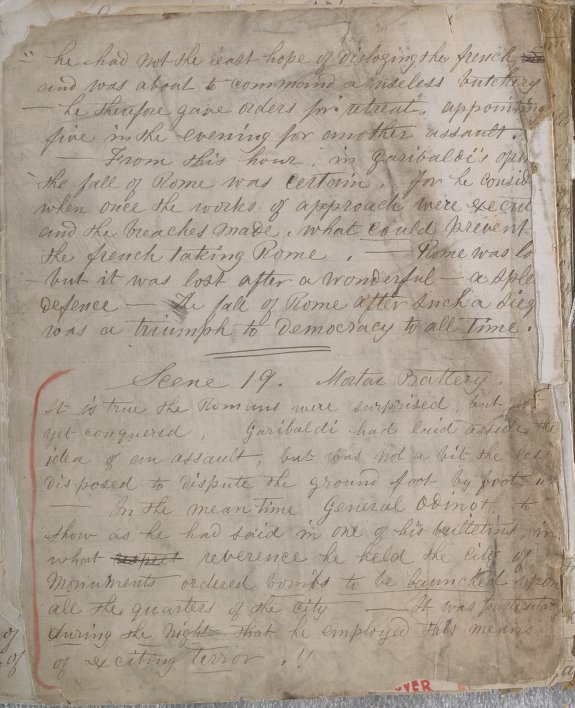 " he had not the least hope of dislodging the french
and was about to command a useless butchery
— he therefore gave orders for retreat, appointing
five in the evening for another assault. —
— From this hour, in Garibaldi's opin
the fall of Rome was certain. For he consid
when once the works of approach were execut
and the breaches made, what could prevent
the french taking Rome. — Rome was lo
— but it was lost after a wonderful — a sple
defence — The fall of Rome after such a sieg
was a triumph to Democracy to all time.
Scene 19. Mortar Battery.
It is true the Romans were surprised, but not
yet conquered, Garibaldi had laid aside the
idea of an assault, but was not a bit the les
disposed to dispute the ground foot by foot
— In the mean time General Odinot, to
show as he had said in one of his bulletins, in
what respect reverence he held the city of
Monuments ordered bombs to be launched upon
all the quarters of the city — It was particular
during the night that he employed this means
of exciting terror.!!
OVER
of
of